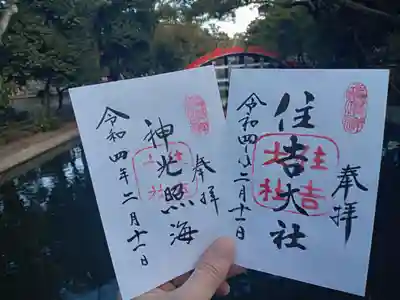 奉拝
住吉大社
住吉
大社
令和四年二月十一日
奉拝
神光照海
住吉
大社
令和四年二月十一日